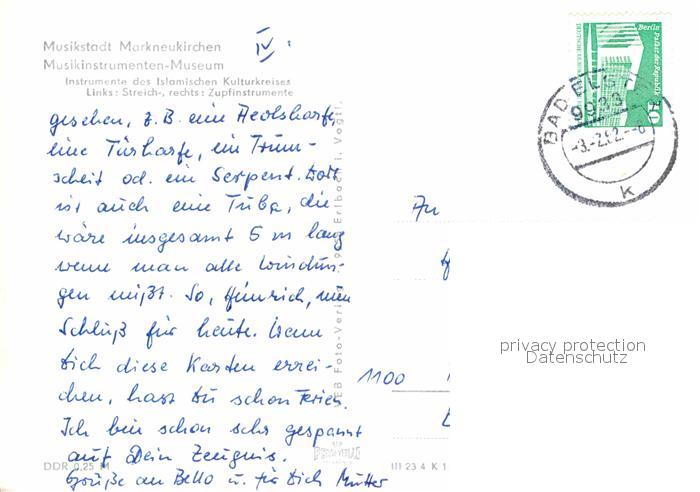 Musikstadt Markneukirchen
Musikinstrumenten-Museum
Instrumente des Islamischen Kulturkreises
Links: Streich-, rechts: Zupfinstrumente
IV.
gesehen, z.B. eine Aeolsharfe,
eine Türharfe, ein Trumm-
scheit od. ein Serpent. Dort
ist auch eine Tuba, die
wäre insgesamt 5 m lang
wenn man alle Windun-
gen mißt. So, Heinrich, nun
Schluß für heute. Wenn
Dich diese Karten errei-
chen, hast Du schon Ferien.
Ich bin schon sehr gespannt
auf Dein Zeugnis.
Grüße an Bello u. für Dich Mutter
DDR 0,25 M
VEB Foto-Verlag Erlbach i. Vogtl.
III 23 4 K 1
Berlin Palast der Republik
10
BAD ELSTER
9933
-3.-2.82.--8
k
An
1100
privacy protection
Datenschutz